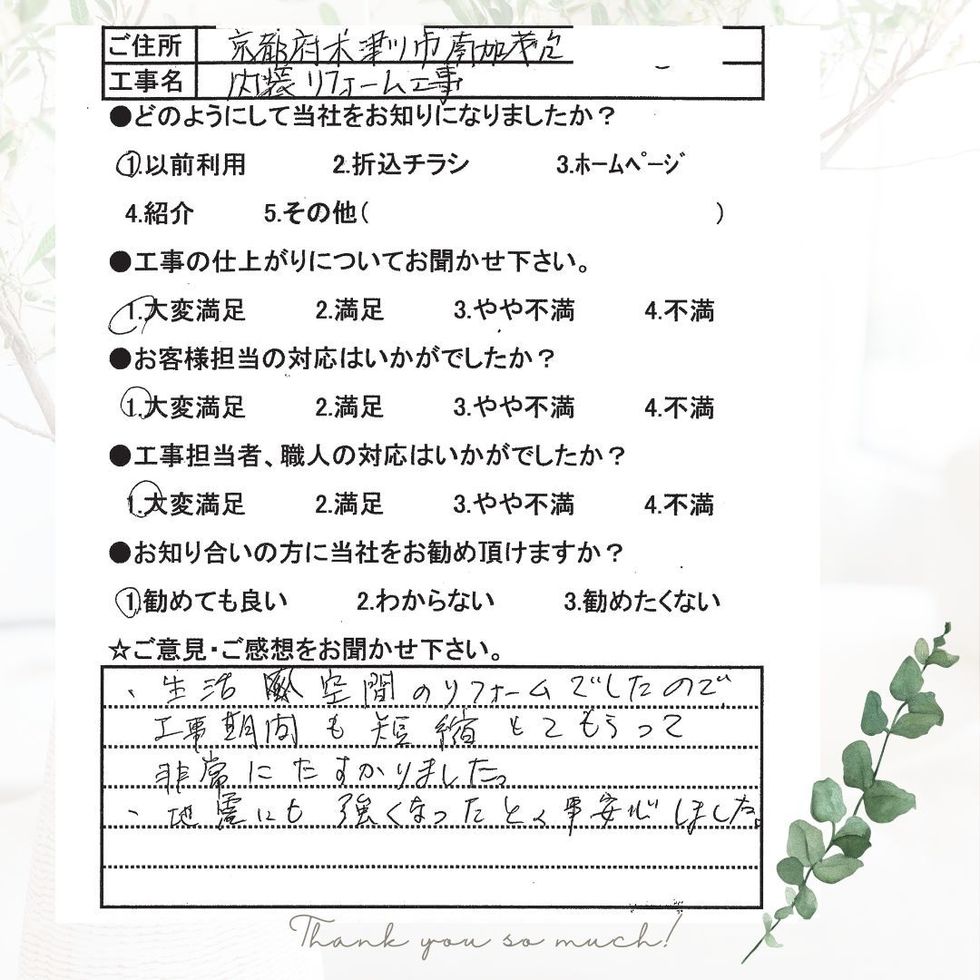 ご住所 京都府木津川市南加茂台
工事名 内装リフォーム工事
●どのようにして当社をお知りになりましたか？
1.以前利用 2.折込チラシ 3.ホームページ
4.紹介 5.その他( )
●工事の仕上がりについてお聞かせ下さい。
1.大変満足 2.満足 3.やや不満 4.不満
●お客様担当の対応はいかがでしたか？
1.大変満足 2.満足 3.やや不満 4.不満
●工事担当者、職人の対応はいかがでしたか？
1.大変満足 2.満足 3.やや不満 4.不満
●お知り合いの方に当社をお勧め頂けますか？
1.勧めても良い 2.わからない 3.勧めたくない
☆ご意見・ご感想をお聞かせ下さい。
、生活空間のリフォームでしたので、
工事期間も短縮してもらって
非常にたすかりました。
、地震にも強くなったとの事安心しました。
Thank you so much!